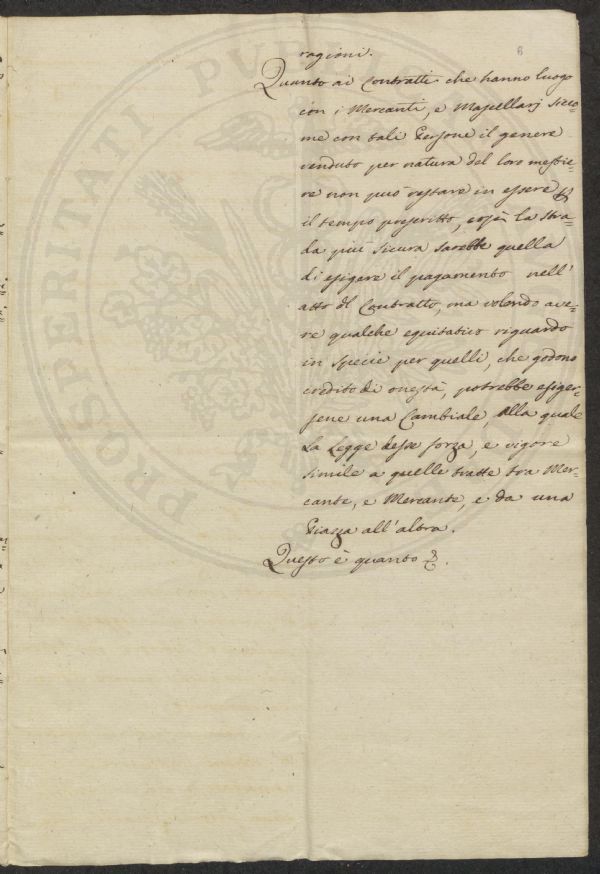 6
ragioni.
Quanto ai Contratti che hanno luogo
con i Mercanti, e Macellarj sicco=
me con tali Persone il genere
venduto per natura del loro mestie=
re non può restare in essere p
il tempo prescritto, così la stra=
da più sicura sarebbe quella
di esigere il pagamento nell'
atto del Contratto, ma volendo ave=
re qualche equitativo riguardo
in specie per quelli, che godono
credito di onestà, potrebbe esiger=
sene una Cambiale, alla quale
la Legge desse forza, e vigore
simile a quelle tratte tra Mer=
cante, e Mercante, e da una
Piazza all'altra.
Questo è quanto &.
PROSPERITATI PUBLIC